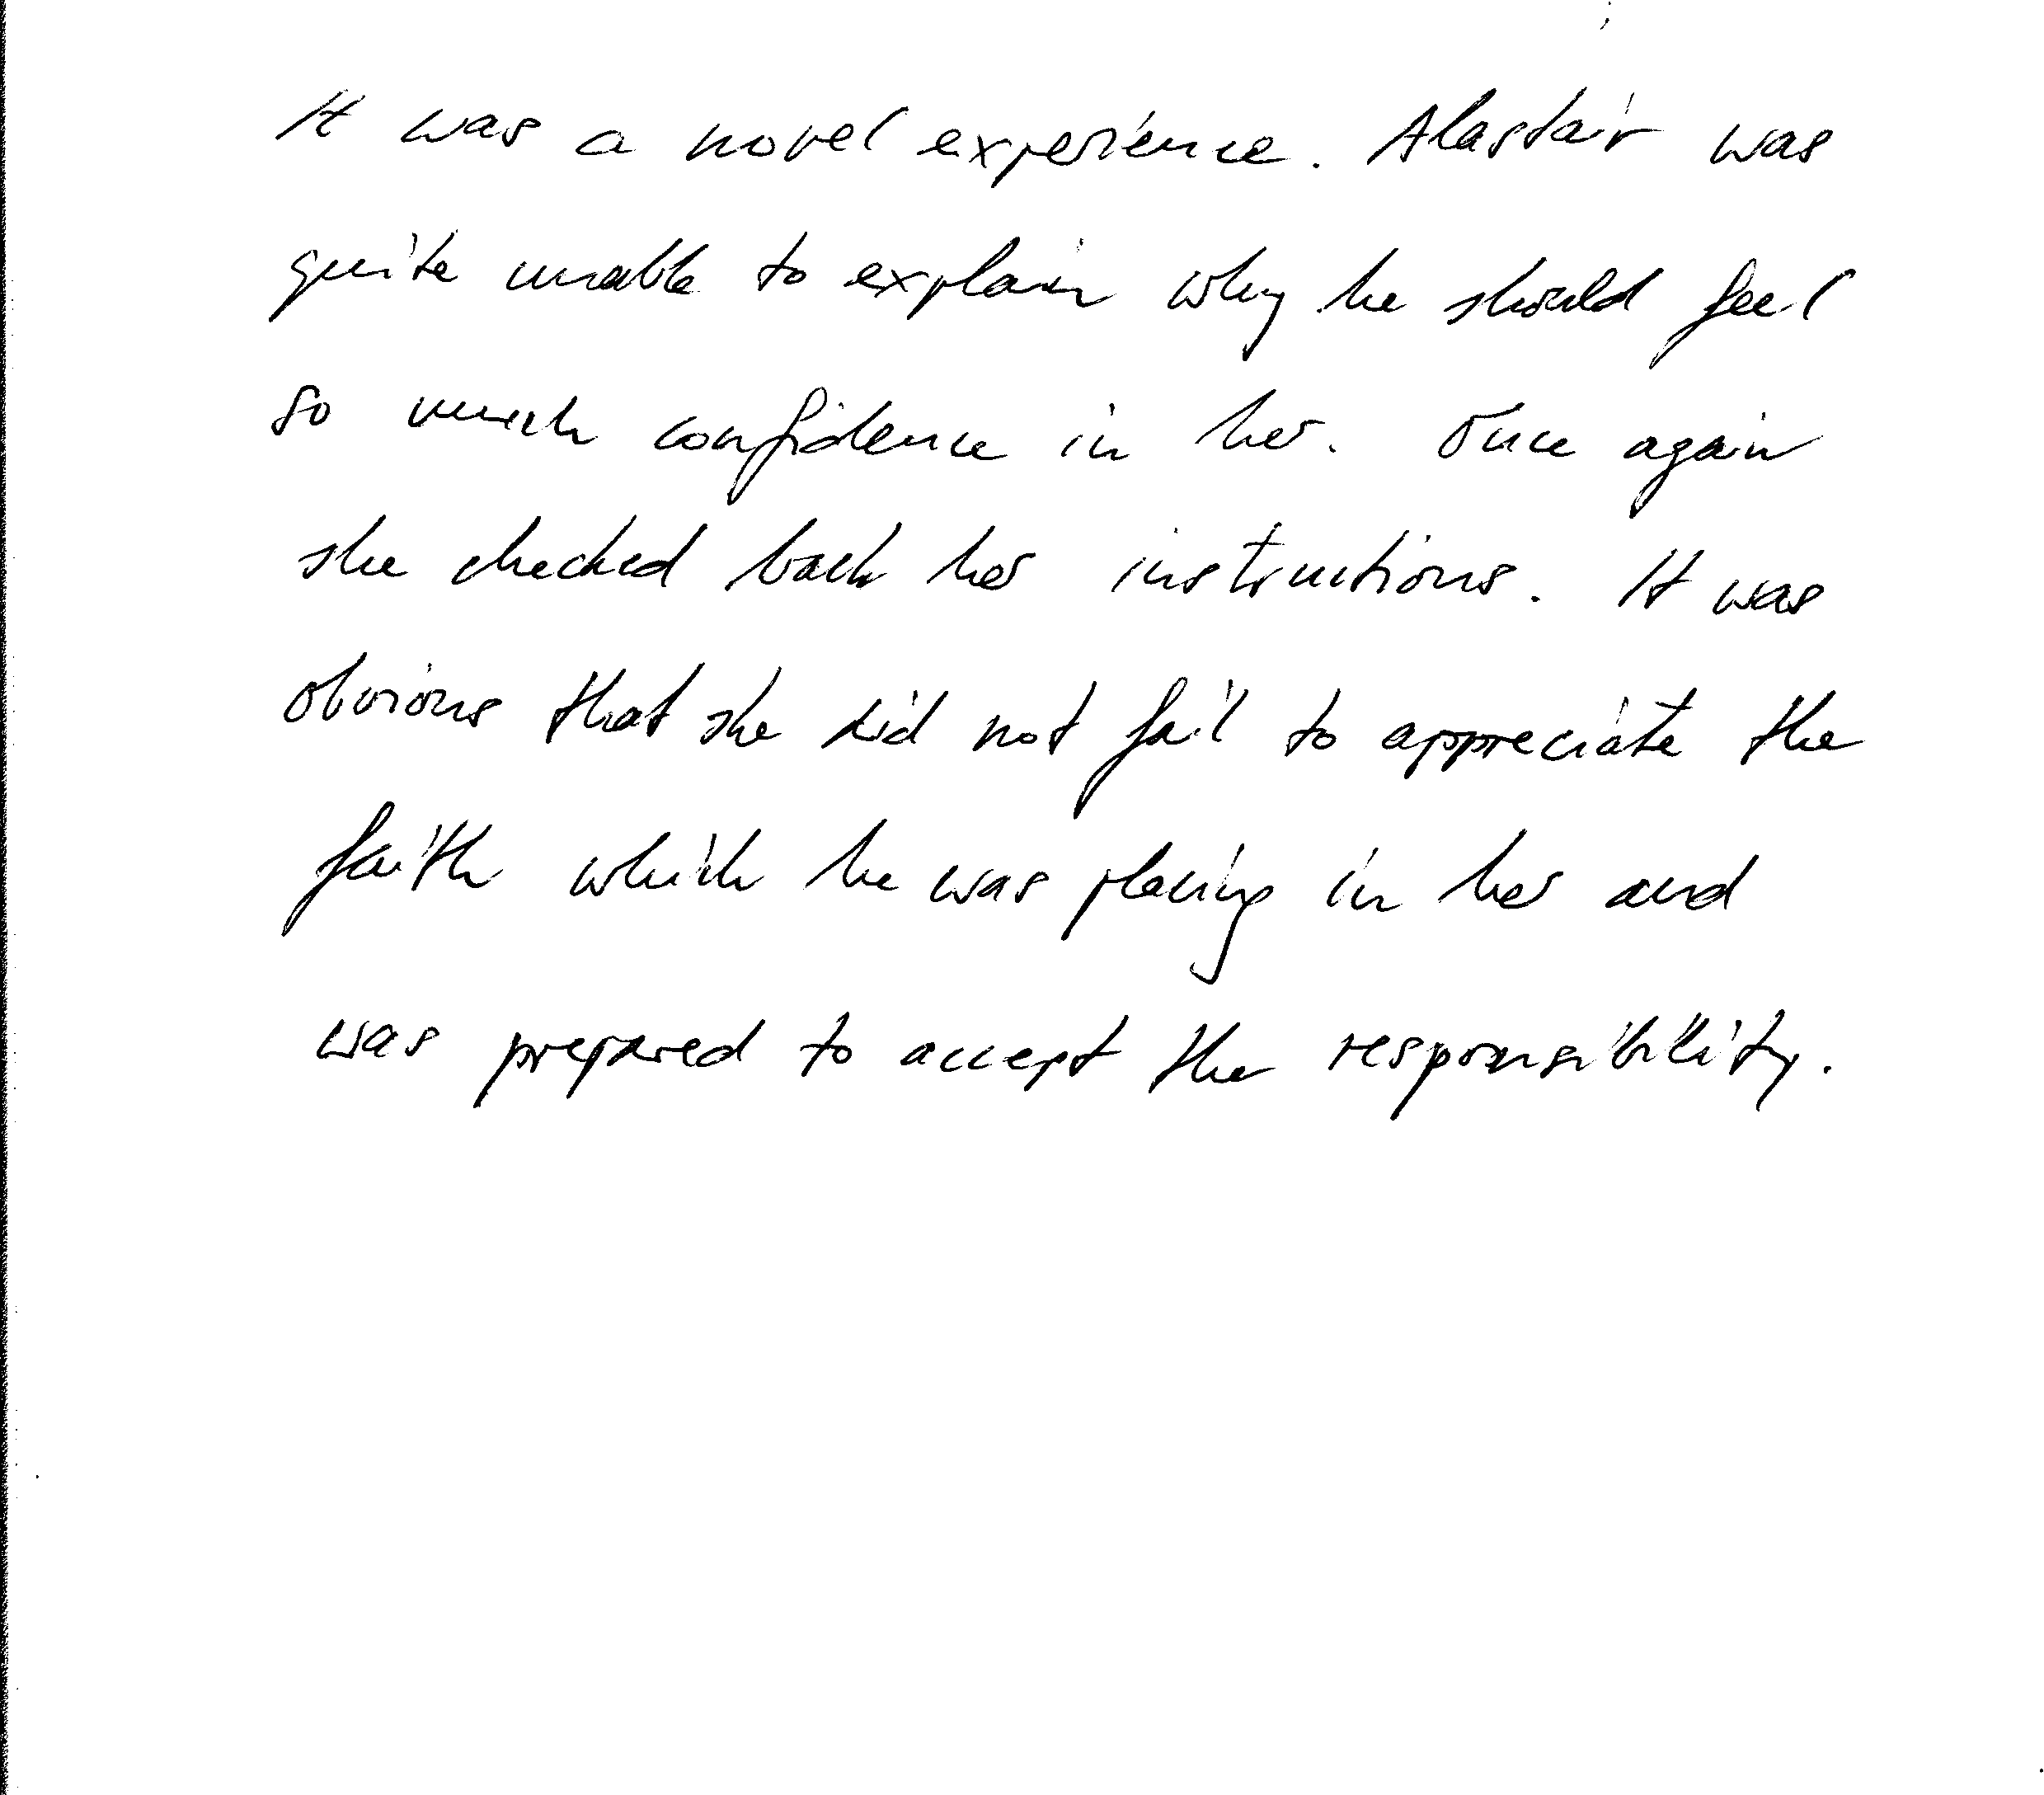 It was a novel experience. Alastair was
quite unable to explain why he should feel
so much confidence in her. Once again
she checked back her instructions. It was
obvious that she did not fail to appreciate the
faith which he was placing in her and
was prepared to accept the responsibility.